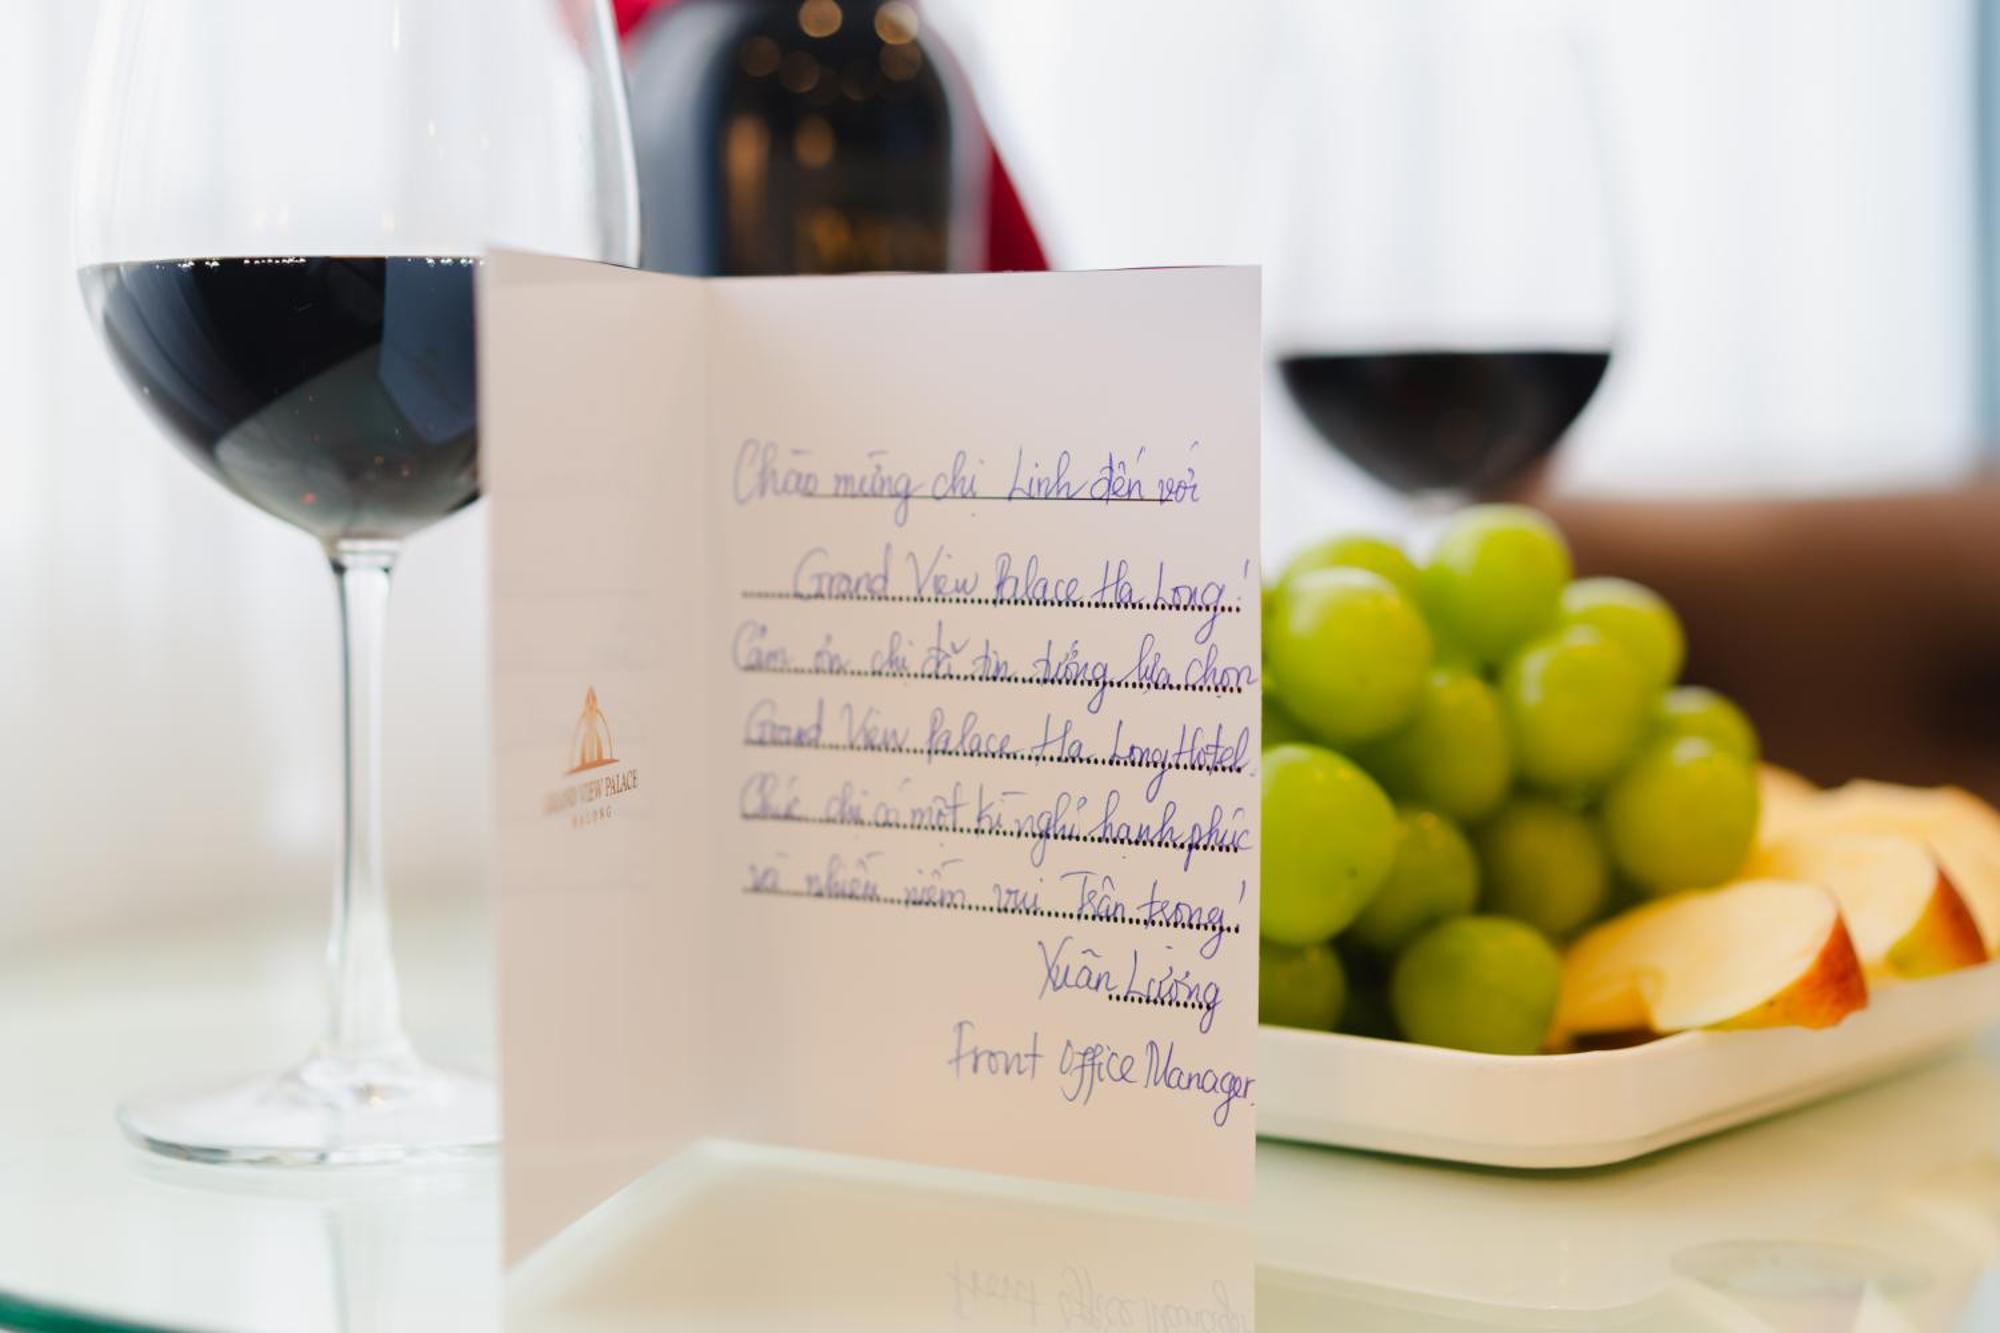 GRAND VIEW PALACE
HALONG
Chào mừng chị Linh đến với
Grand View Palace Ha Long!
Cảm ơn chị đã tin tưởng lựa chọn
Grand View Palace Ha Long Hotel.
Chúc chị có một kì nghỉ hạnh phúc
và nhiều niềm vui Trân trọng!
Xuân Lương
Front Office Manager.